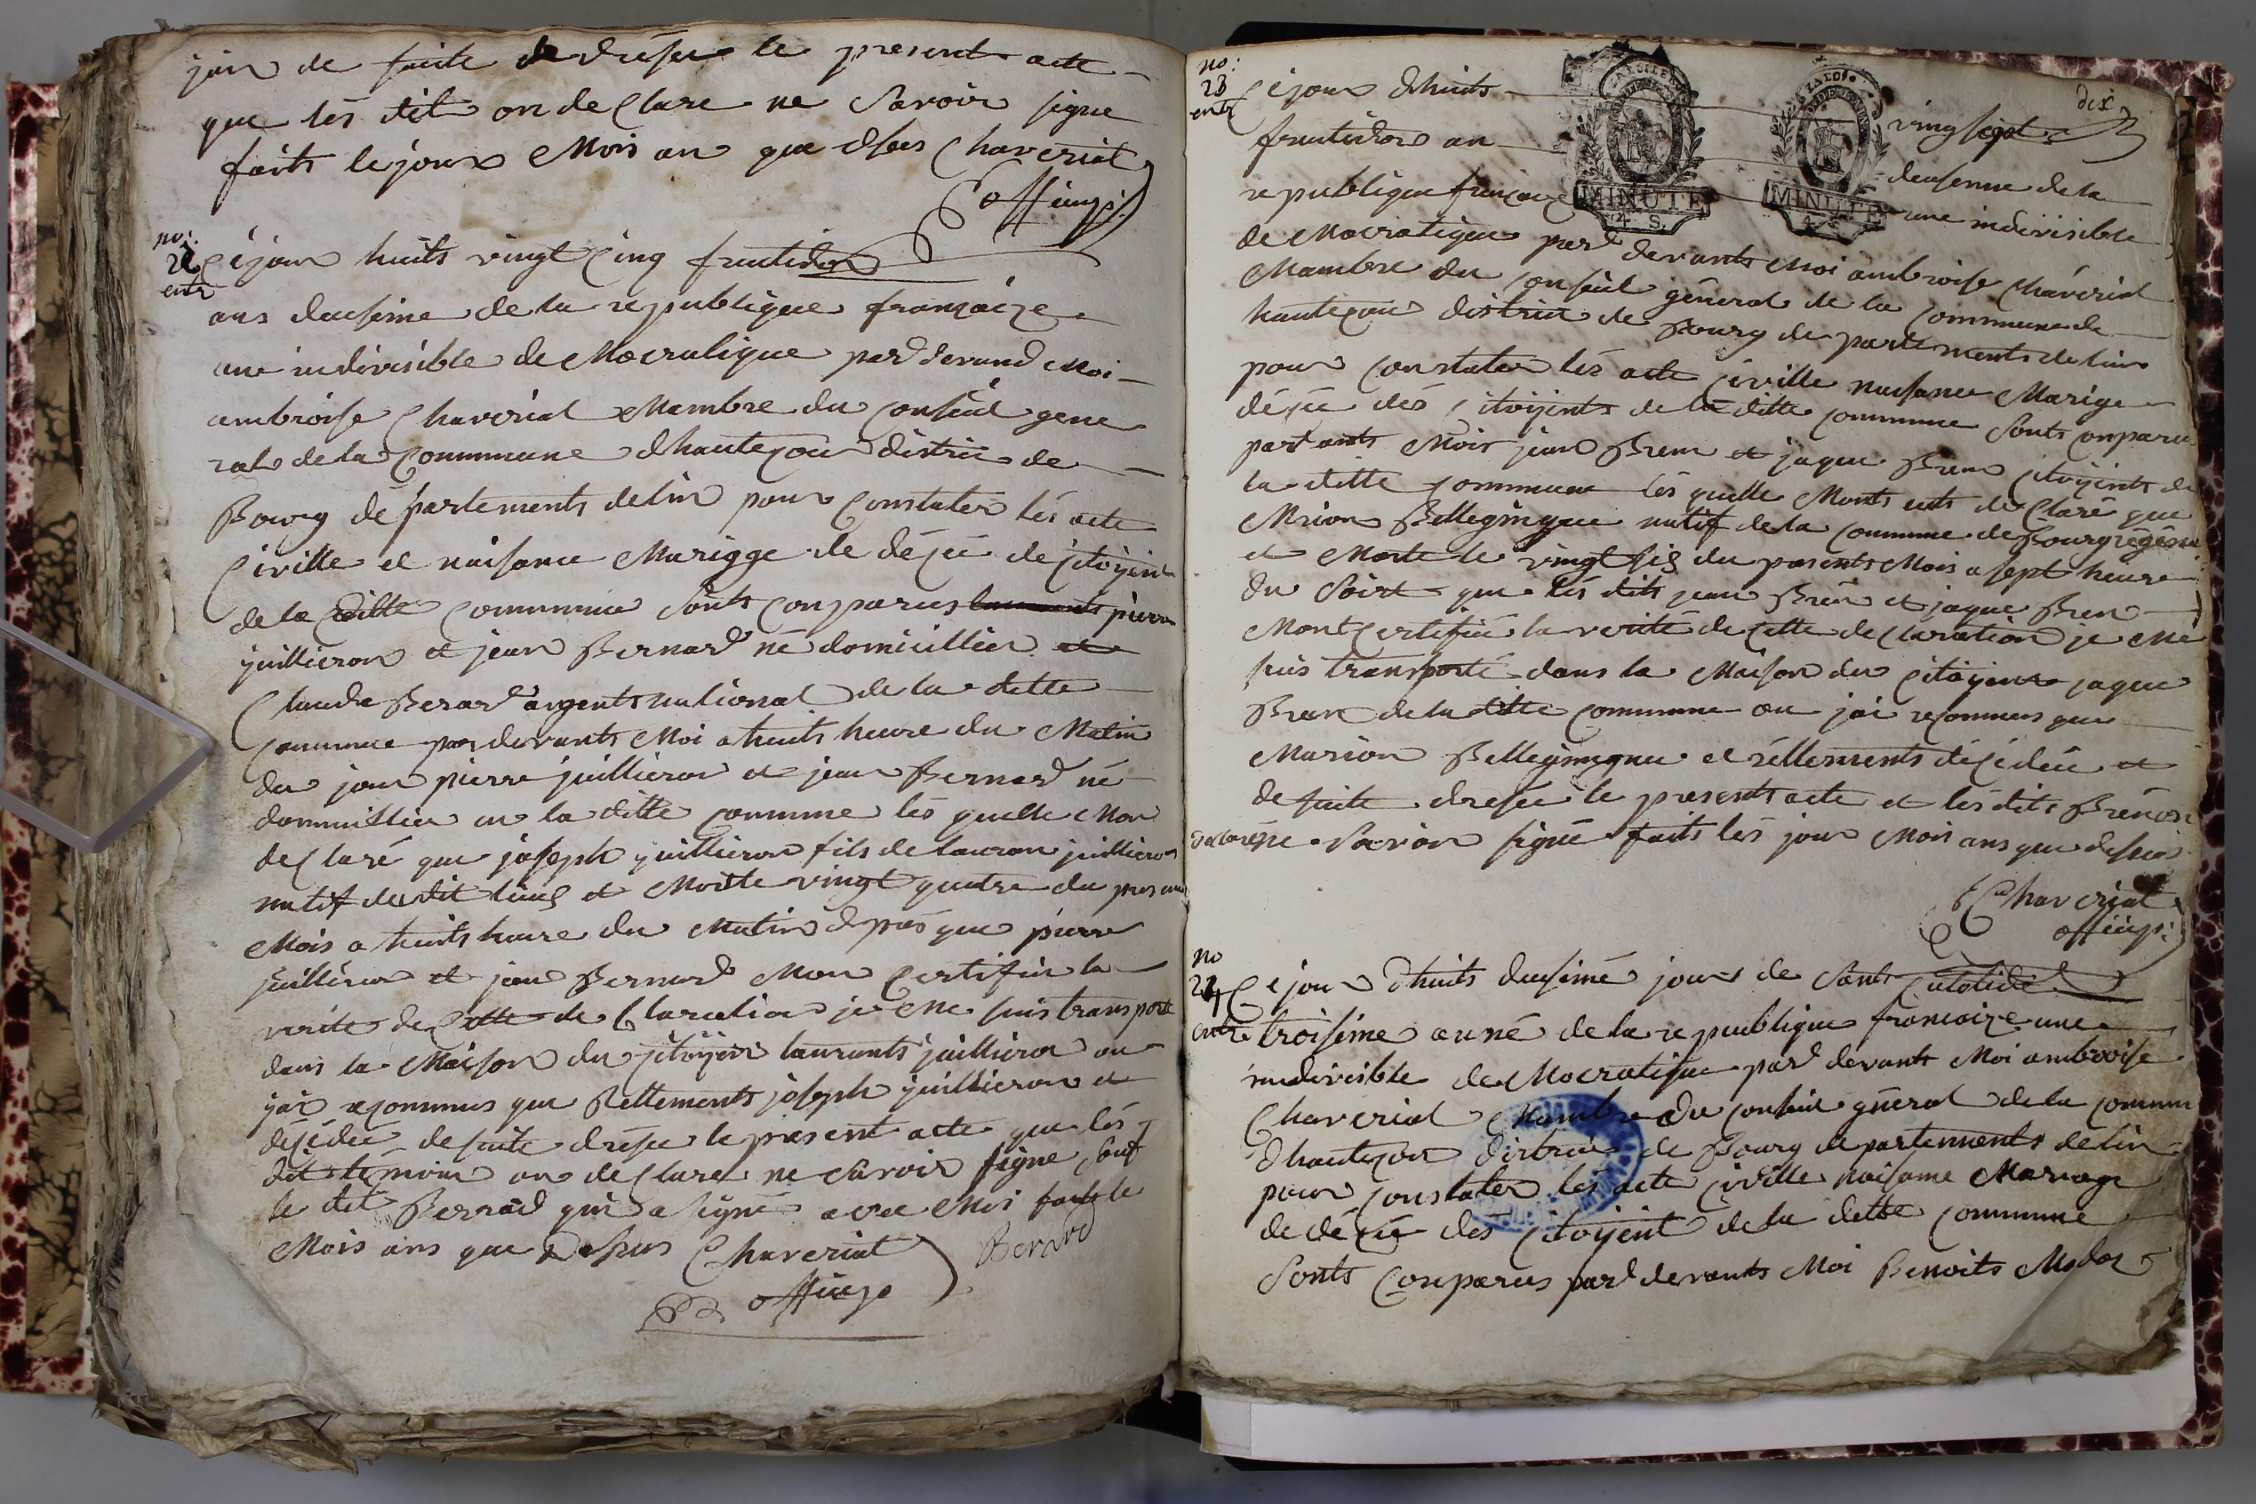 jai de suite de dresse le present acte
que lés dit on de Clare ne Savoir signe
faits le jour Mois an que dsus Chaveriat
offic. p.
no: 22 Céjour huits vingt Cinq frutidor
entr
ans deusieme de la republique françaize
une indivisible de Mocratique pard devand Moi
ambroise Chaveriat Mambre du Conseil gene
ral de la Commune dhauteçou distric de
Bourg dé partements delin pour Constater lés acte
Civille de naisance Marigge de déçée de çitoyient
de la ditte Commune Sonts Conparus pierre
juillieron et jean Bernard né domicillier et
Claude Berard argents national de la ditte
Commune par devants Moi a huits heure du Matin
du jour pierre juillieron et jean Bernard né
dommisllier en la ditte Commune lés quelle Mon
de Claré que joseph juillieron fils de lauran juillieron
natif du dit lieus et Morte vingt quatre du presant
Mois a huits heure du Matin dprés que pierre
juilliéron et jean Bernard Mon Certifiée la
verite de Cette de Claration je Me suis transporté
dans la Maison du çitoyien laurants juillieron ou
jai reconnus que Rellements joseph juillieron et
déçédée de suite dresee le present acte que lés
dit témoin on de Clare ne Savoir signe souf
le dit Berrad qui a signé avee Moi faits le
Mois ans que desus Chaveriat Berard
offic. p.
dix
no: 23 Céjour dhuits vingsept
entr
frutidor an deusieme de la
republique françaize une indivisible
MINUTE 4. S. MINUTE
de Mocratique pard devants Moi ambroise Chavériat
Mambre du Conseil général de la Commune de
hauteçou district de Bourg de partements de lin
pour Constater lés acte Civille naisance Marige
déçée dés Citoyients de la ditte Commune Sonts Conparu
pard ants Moir jean Bren et jaque Bren Citoyients de
la ditte Commune lés quelle Monts ents de Claré que
Mrion Bellegingue natif de la Commune de Bourgregéné
et Morte le vingt sis du presents Mois a sept heure
du Soirt que lés dits jean Bren et jaque Bren
Mont Certifiée la verité de Cette de Claration je Me
suis transporté dans la Maison du Citoyient jaque
Bren de la ditte Commune ou jai reconnus que
Marion Bellegingue et réllements déçédée et
de suite dresée le presents acte et lés dits Bren on
declare ne Savoir signé faits lés jour Mois ans que desus
Chaveriat
offic. p.
no 24 Céjour dhuits deusiémé jour de Sans Culotide
entre troisiéme année de la republique francaize une
indivisible de Mocratique pard devants Moi ambroise
Chaveriat Mambre du Conseil général de la Commun
dhauteçou distric de Bourg departements de lin
pour Constater lés acte Çiville naisance Mariage
de déçée dés Citoyient de la ditte Commune
Sonts Conparus pard devants Moi Benoits